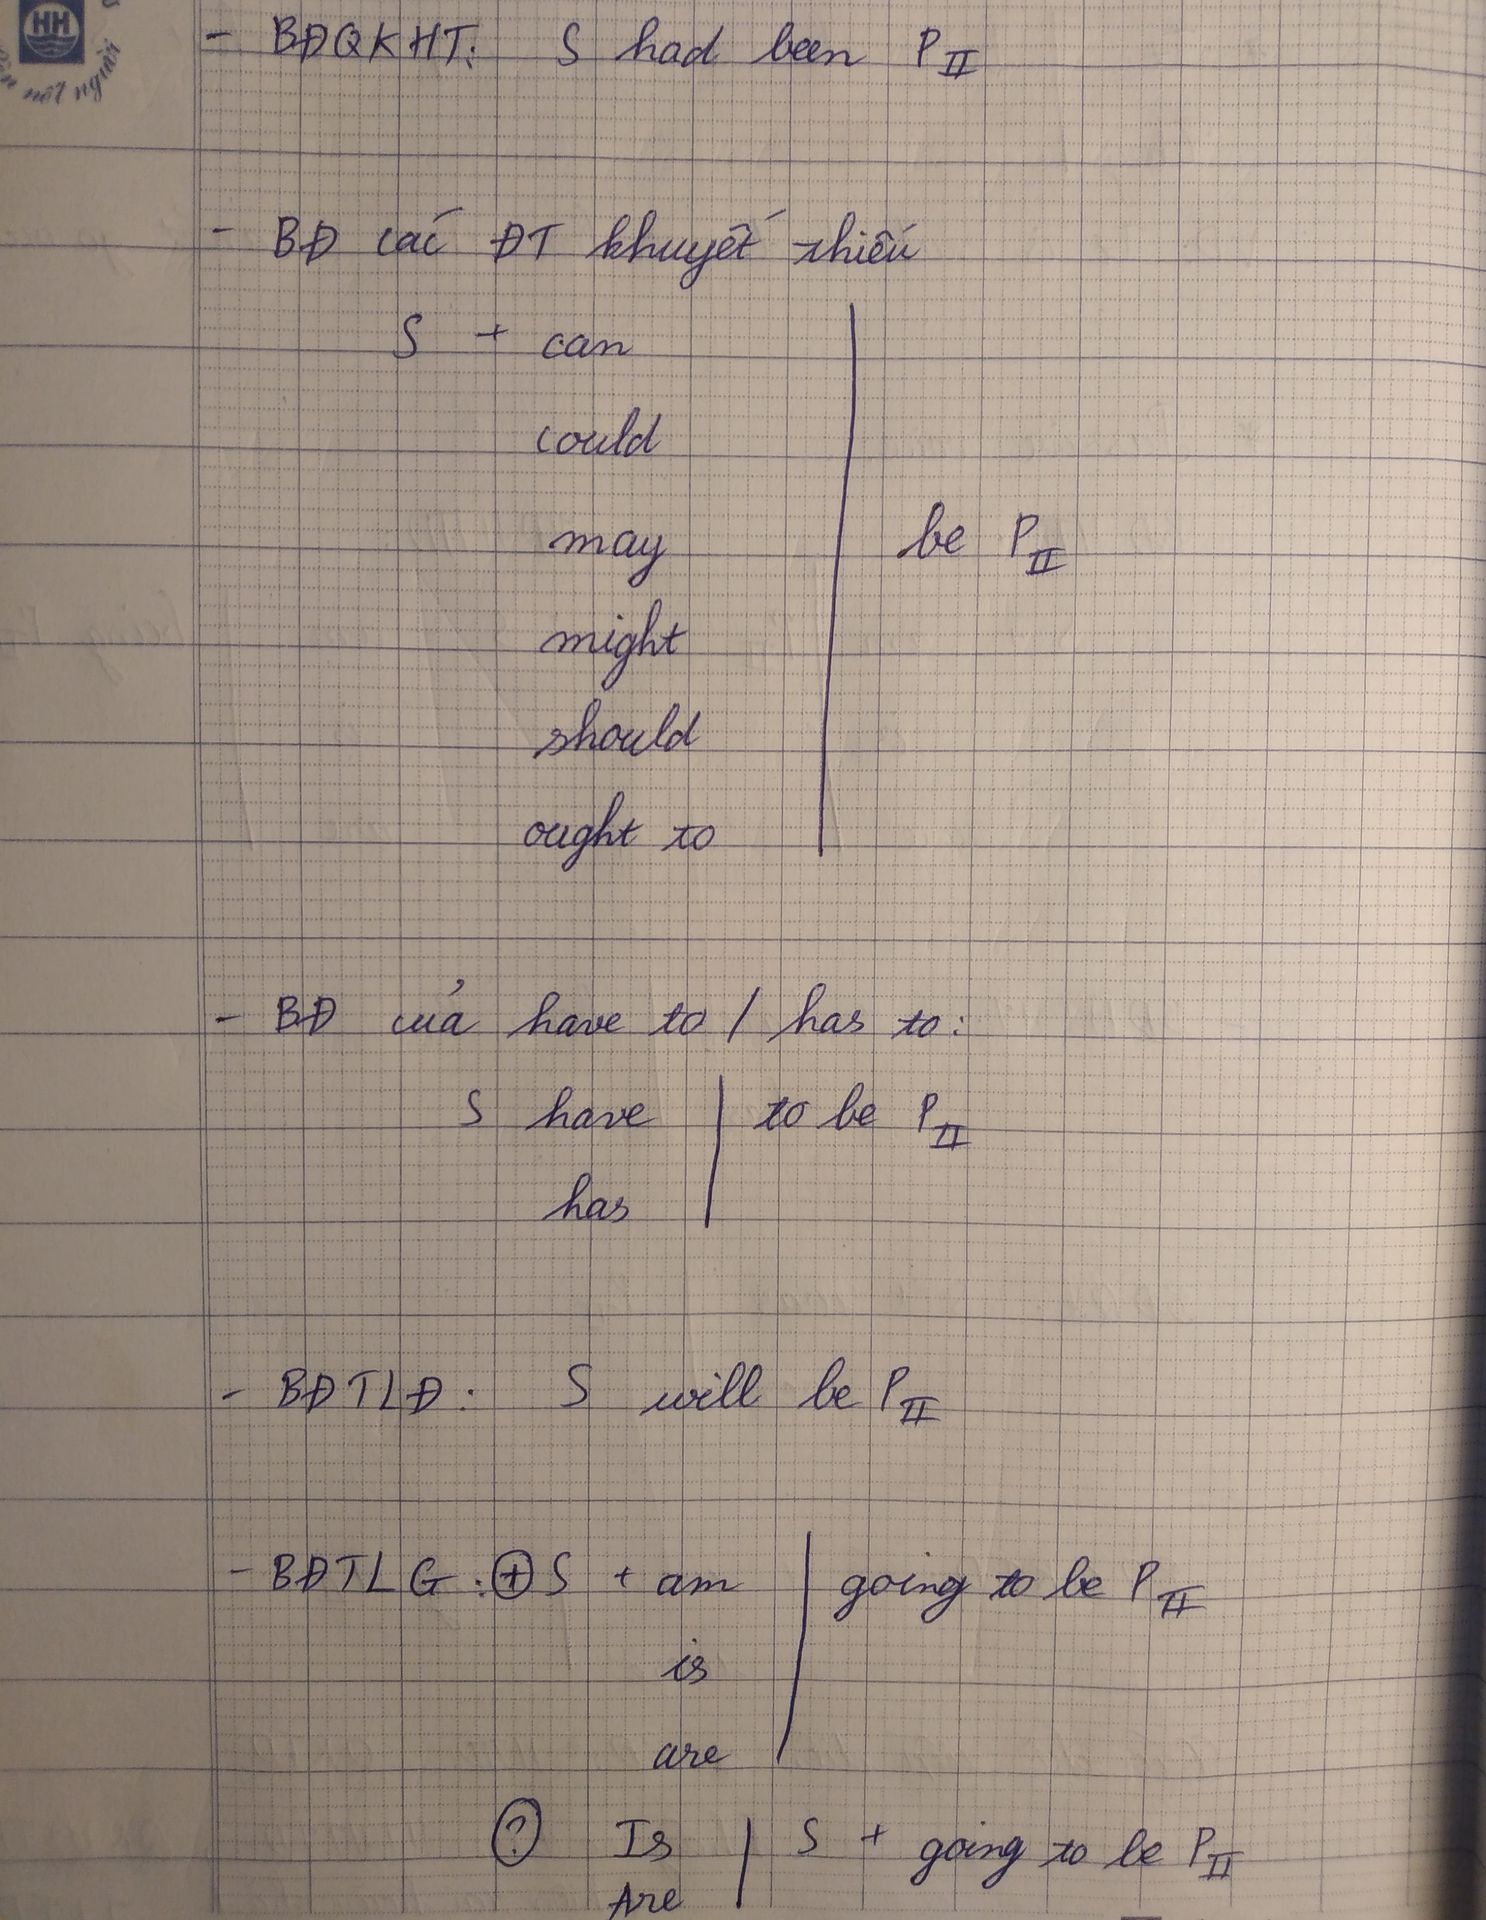 HH
nét người
- BĐQKHT: S had been PII
- BĐ các ĐT khuyết thiếu
S + can
could
may
be PII
might
should
ought to
- BĐ của have to / has to:
S have | to be PII
has
- BĐTLĐ: S will be PII
- BĐTLG: + S + am | going to be PII
is
are
? Is | S + going to be PII
Are